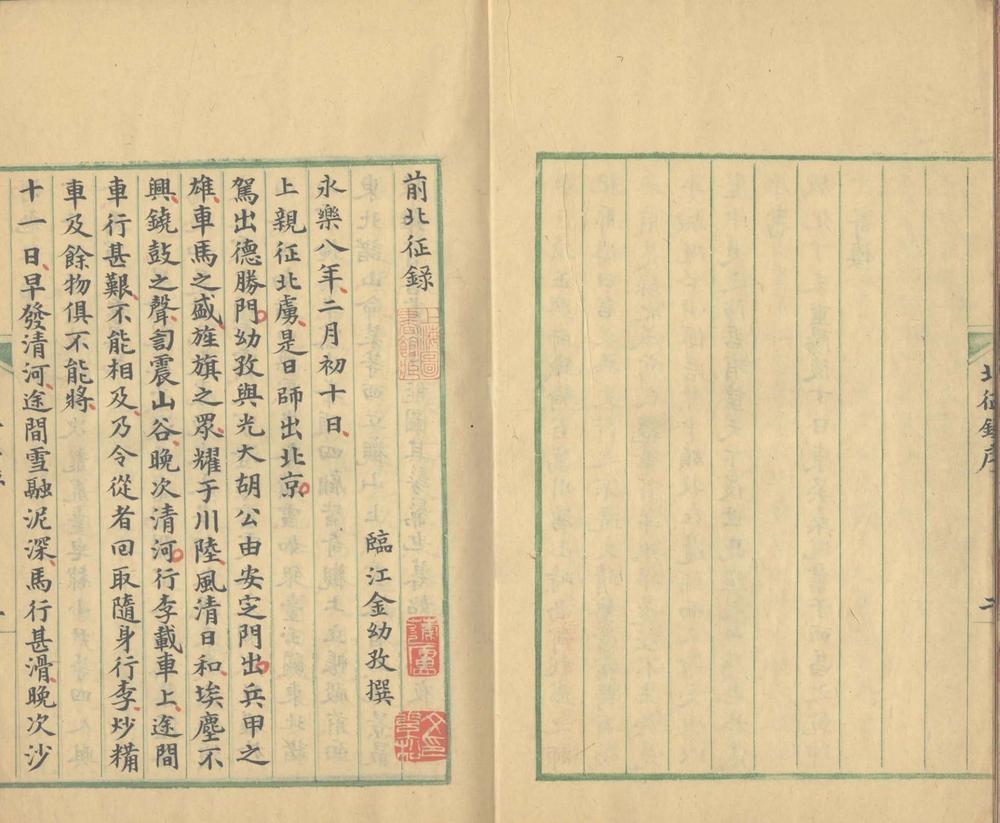 北征録序
前北征録
臨江金幼孜撰
永樂八年、二月初十日、
上親征北虜、是日師出北京。
駕出德勝門。幼孜與光大胡公由安定門出。兵甲之
雄、車馬之盛、旌旗之眾、耀于川陸、風清日和、埃塵不
興、鐃鼓之聲、訇震山谷、晚次清河。行李載車上、途間
車行甚艱、不能相及、乃令從者回取隨身行李、炒糒
車及餘物俱不能將、
十一日、早發清河、途間雪融泥深、馬行甚滑、晚次沙